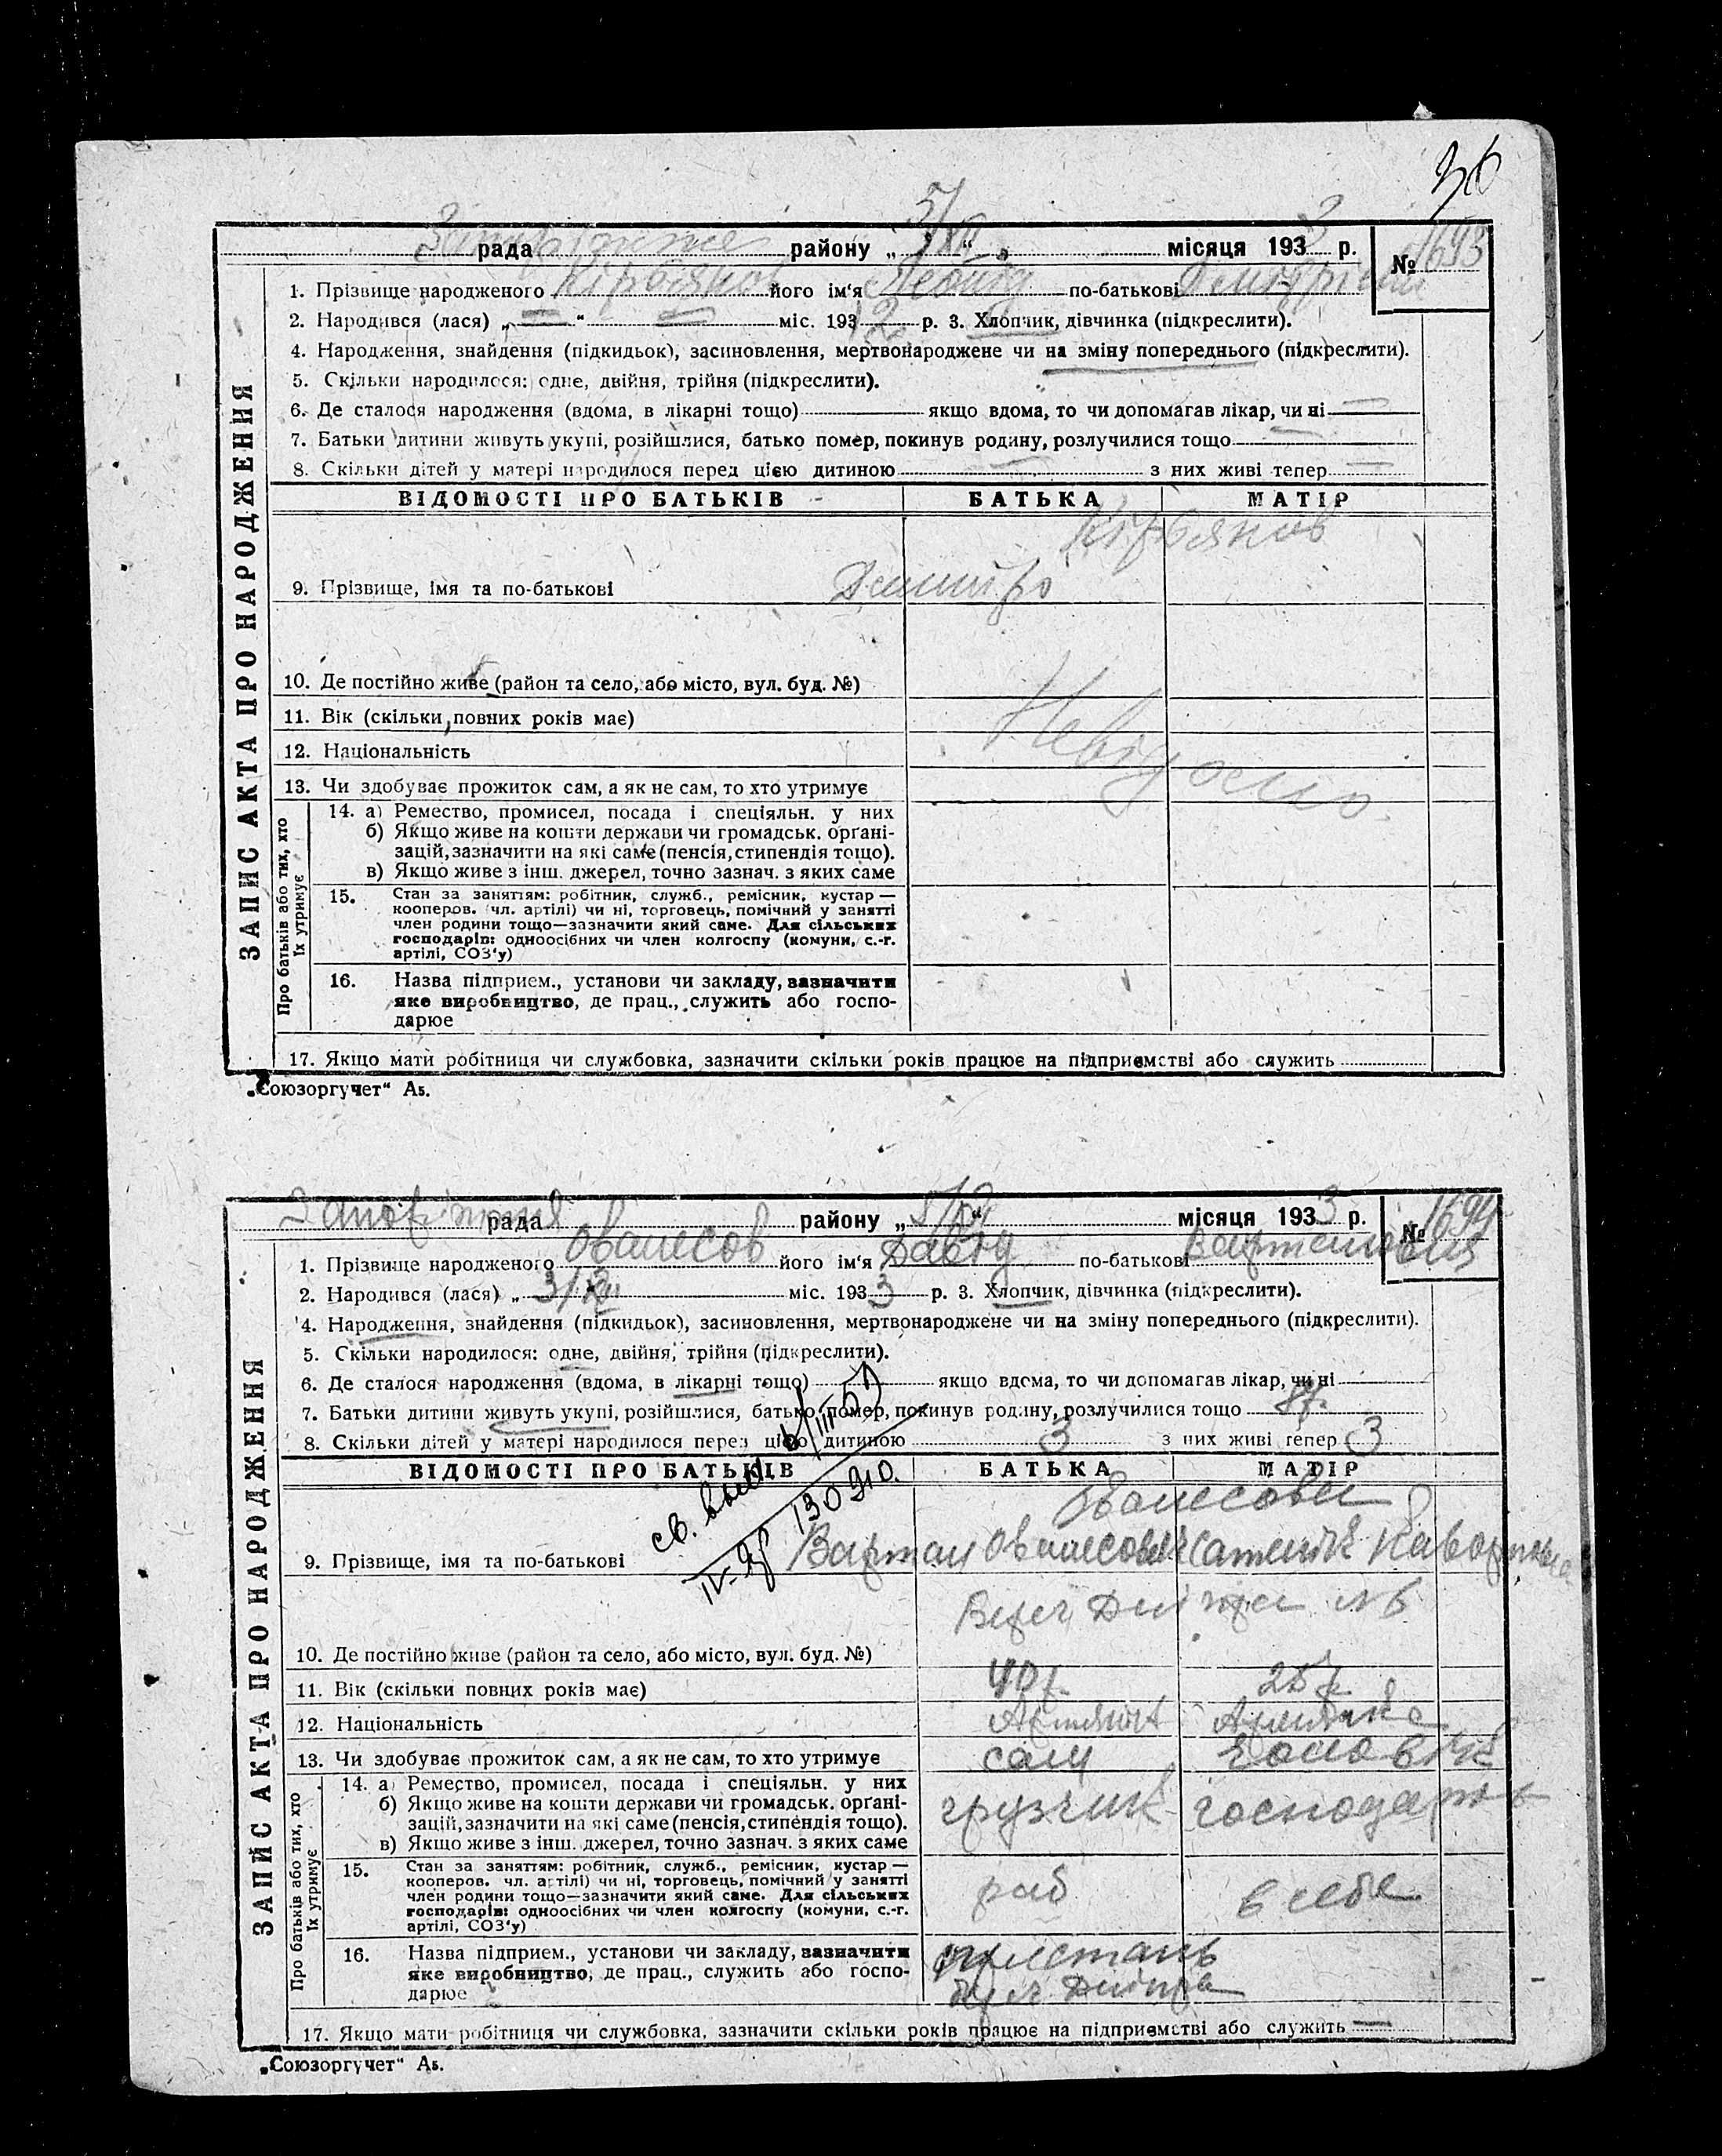 36
рада району „ 5/XII “ „ місяця 1933 р. № 1693
1. Прізвище народженого Кірьянов його ім'я Леонід по-батькові
2. Народився (лася) „ — “ — міс. 1932 р. 3. Хлопчик, дівчинка (підкреслити).
4. Народження, знайдення (підкидьок), засиновлення, мертвонароджене чи на зміну попереднього (підкреслити).
5. Скільки народилося: одне, двійня, трійня (підкреслити).
6. Де сталося народження (вдома, в лікарні тощо) якщо вдома, то чи допомагав лікар, чи ні —
7. Батьки дитини живуть укупі, розійшлися, батько помер, покинув родину, розлучилися тощо
8. Скільки дітей у матері народилося перед цією дитиною — з них живі тепер —
ВІДОМОСТІ ПРО БАТЬКІВ БАТЬКА МАТІР
Кірьянов
9. Прізвище, імя та по-батькові Дмитро
10. Де постійно живе (район та село, або місто, вул. буд. №)
11. Вік (скільки повних років має)
Невідомо.
12. Національність
13. Чи здобуває прожиток сам, а як не сам, то хто утримує
14. а) Ремество, промисел, посада і спеціяльн. у них
б) Якщо живе на кошти держави чи громадськ. орґані-
зацій, зазначити на які саме (пенсія, стипендія тощо).
в) Якщо живе з інш. джерел, точно зазнач. з яких саме
15. Стан за заняттям: робітник, служб., ремісник, кустар —
кооперов. (чл. артілі) чи ні, торговець, помічний у занятті
член родини тощо—зазначити який саме. Для сільських
господарів: одноосібних чи член колгоспу (комуни, с.-г.
артілі, СОЗ'у)
16. Назва підприєм., установи чи закладу, зазначити
яке виробництво, де прац., служить або госпо-
дарює
17. Якщо мати робітниця чи службовка, зазначити скільки років працює на підприємстві або служить
ЗАПИС АКТА ПРО НАРОДЖЕННЯ
Про батьків або тих, хто
їх утримує
„Союзоргучет“ А5.
рада району „ 5/XII “ місяця 1933 р. № 1694
1. Прізвище народженого Ованесов його ім'я Давід по-батькові Вартанович
2. Народився (лася) „ 3/XII міс. 1933 р. 3. Хлопчик, дівчинка (підкреслити).
4. Народження, знайдення (підкидьок), засиновлення, мертвонароджене чи на зміну попереднього (підкреслити).
5. Скільки народилося: одне, двійня, трійня (підкреслити).
6. Де сталося народження (вдома, в лікарні тощо) якщо вдома, то чи допомагав лікар, чи ні
7. Батьки дитини живуть укупі, розійшлися, батько помер, покинув родину, розлучилися тощо
8. Скільки дітей у матері народилося перед цією дитиною 3 з них живі тепер 3
ВІДОМОСТІ ПРО БАТЬКІВ БАТЬКА МАТІР
св. выд.
130910.
Ованесови
9. Прізвище, імя та по-батькові Вартан Ованесович Сатенік
Берег Дніпра №6
10. Де постійно живе (район та село, або місто, вул. буд. №)
11. Вік (скільки повних років має) 40 р. 25 р.
12. Національність Армянин Армянка
13. Чи здобуває прожиток сам, а як не сам, то хто утримує сам чоловік
14. а) Ремество, промисел, посада і спеціяльн. у них
б) Якщо живе на кошти держави чи громадськ. орґані- грузчик господар.
зацій, зазначити на які саме (пенсія, стипендія тощо).
в) Якщо живе з інш. джерел, точно зазнач. з яких саме
15. Стан за заняттям: робітник, служб., ремісник, кустар —
кооперов. чл. артілі) чи ні, торговець, помічний у занятті
член родини тощо—зазначити який саме. Для сільських раб в себе
господарів: одноосібних чи член колгоспу (комуни, с.-г.
артілі, СОЗ'у)
16. Назва підприєм., установи чи закладу, зазначити пристань
яке виробництво, де прац., служить або госпо- берег Дніпра
дарює
17. Якщо мати робітниця чи службовка, зазначити скільки років працює на підприємстві або служить —
ЗАПИС АКТА ПРО НАРОДЖЕННЯ
Про батьків або тих, хто
їх утримує
„Союзоргучет“ А5.